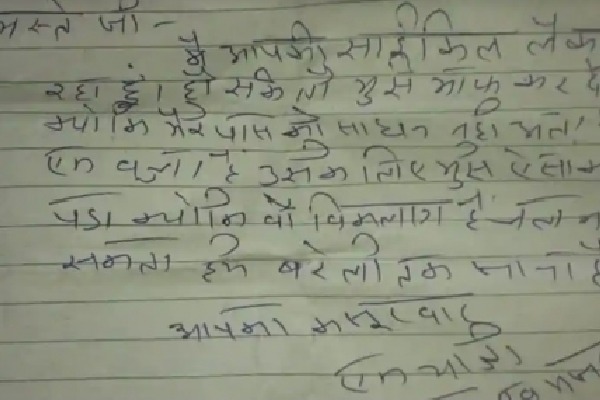 नमस्ते जी -
मैं आपकी साईकिल लेक
रहा हूं। हो सके तो मुझे माफ कर दे
क्योंकि मेरे पास को साधन नही अता।
एक बच्चा है उसके लिए मुझे ऐसा क
पड़ा क्योंकि वो विकलांग है चल न
सकता हमे बरेली तक जाना है
आपका कसूरवार
एक यात्री